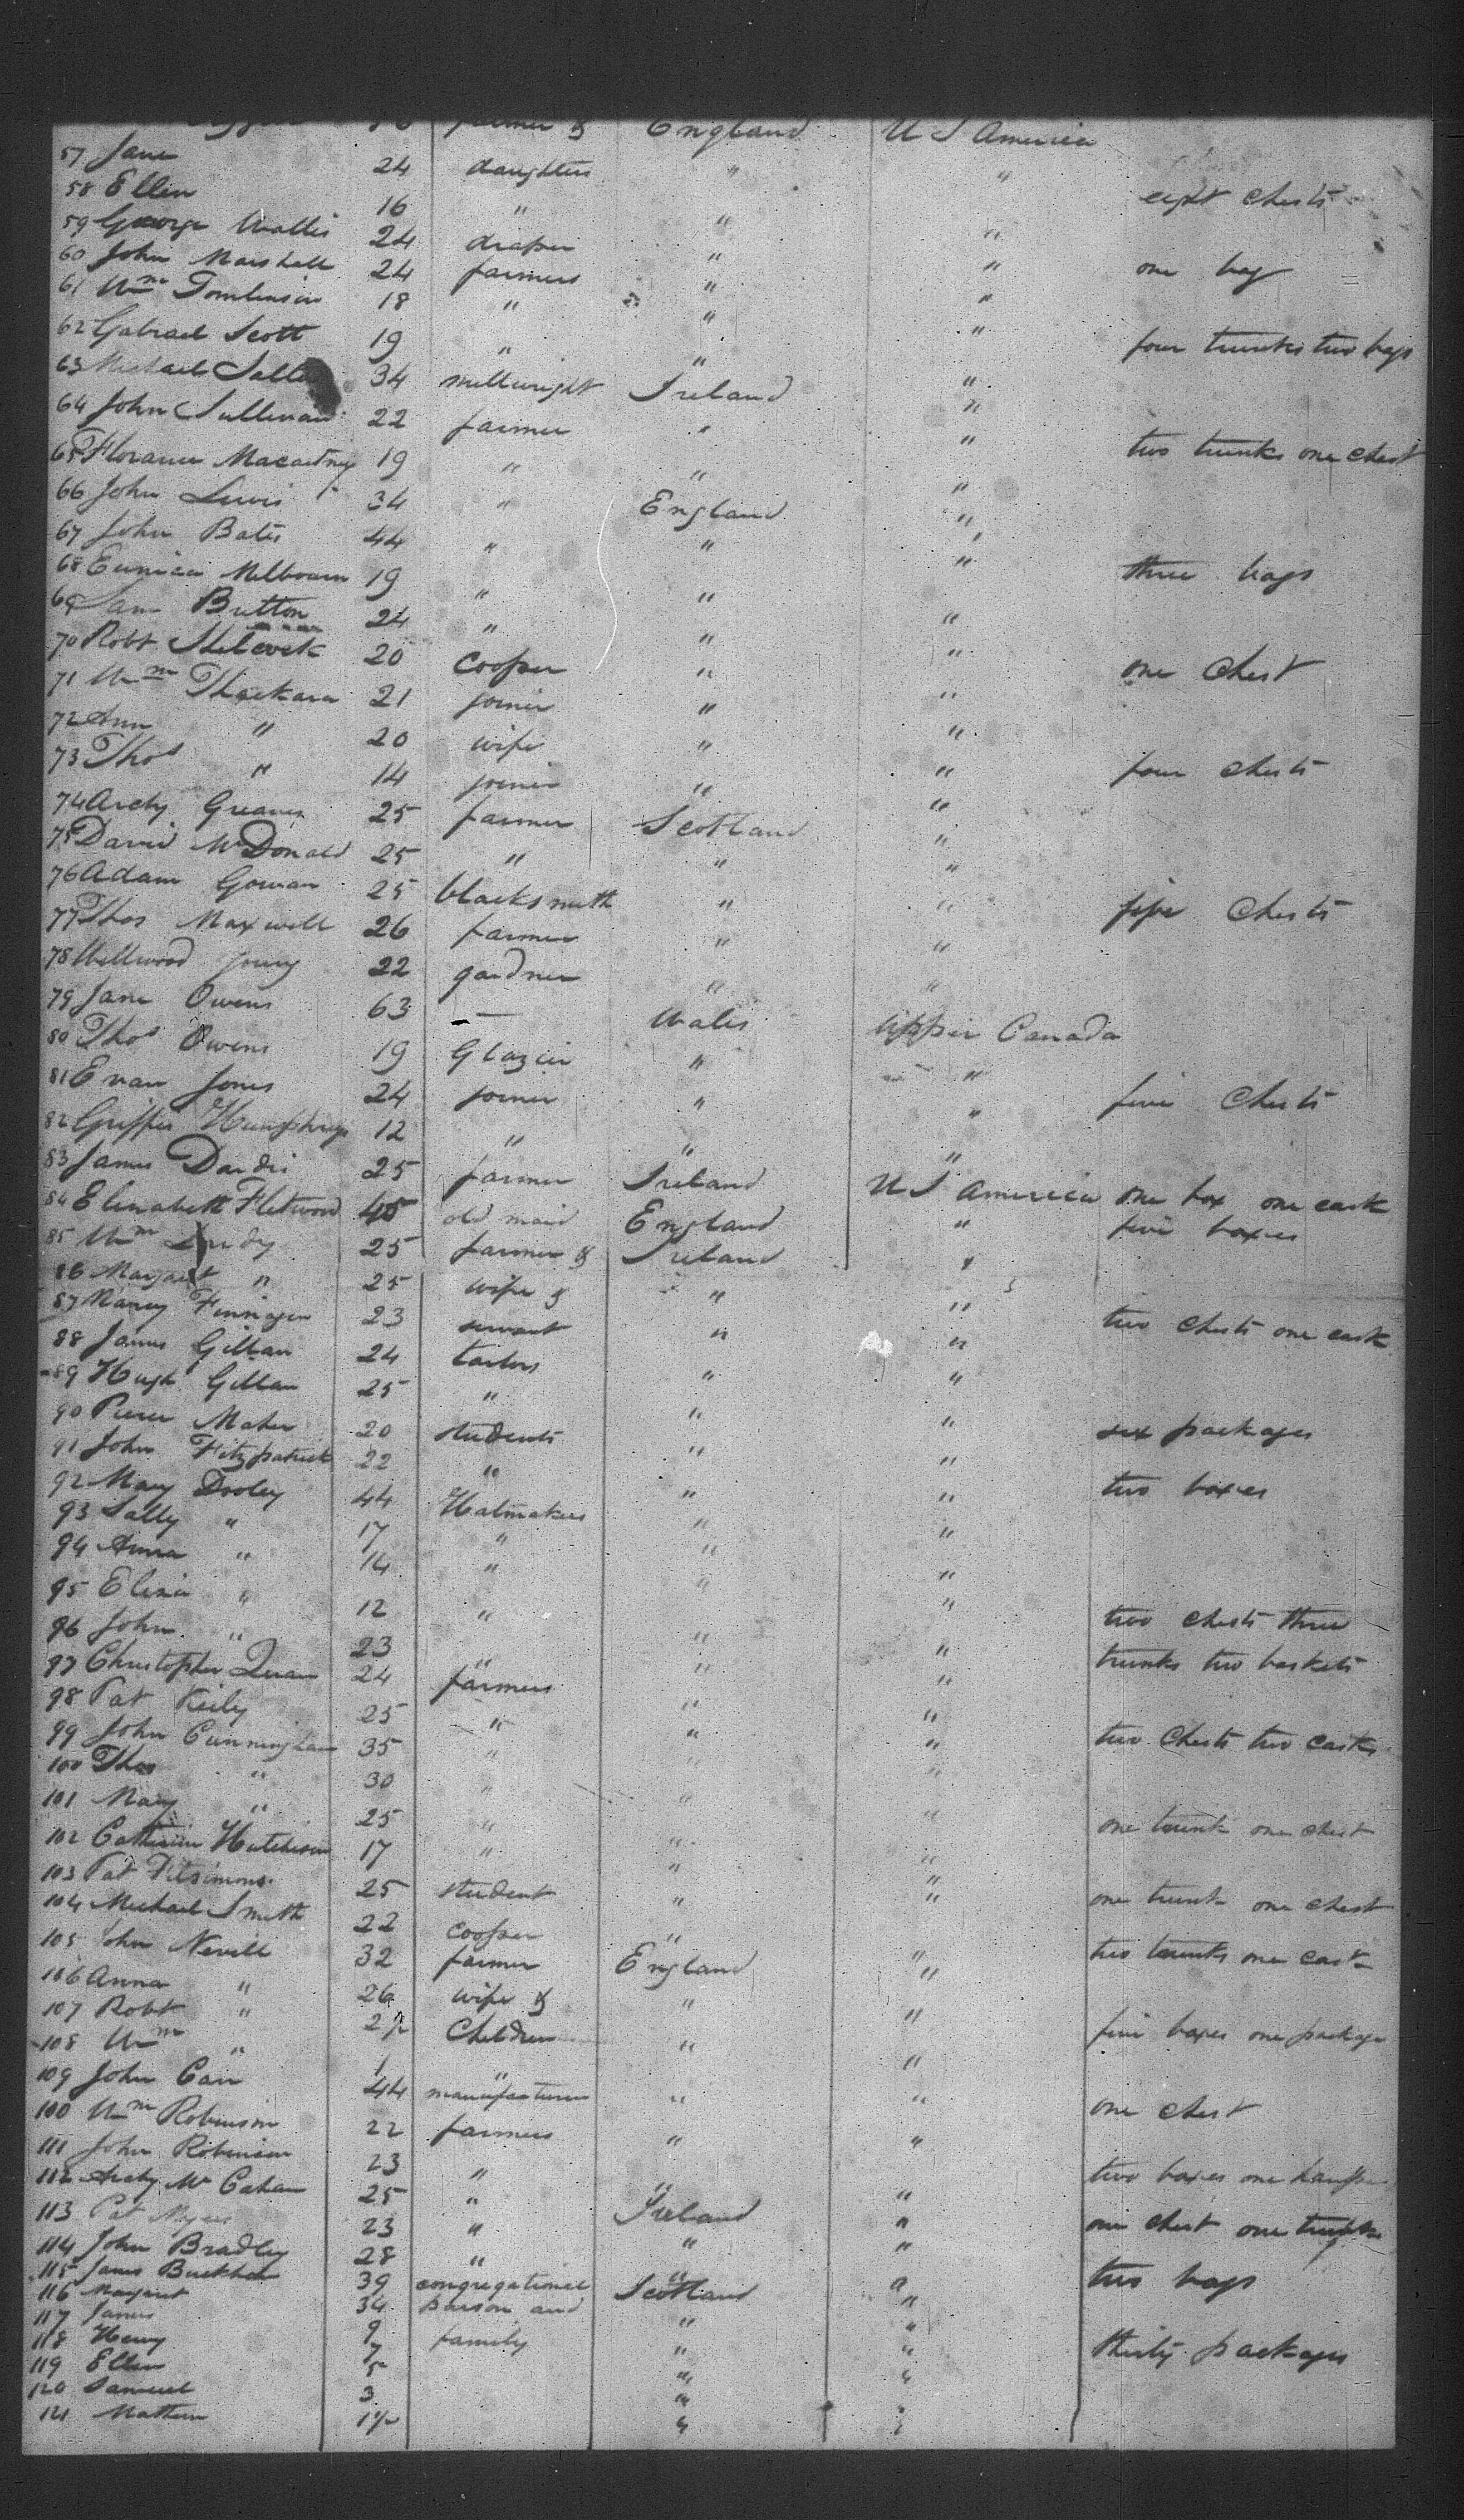 England U S America
57 Jane 24 daughters " "
58 Ellen 16 " " " eight chests
59 George Wallis 24 draper " "
60 John Marshall 24 farmers " " one bag
61 Wm Tomlinson 18 " " "
62 Gabrael Scott 19 " " " four trunks two bags
63 Michael 34 millwright Ireland "
64 John Sullivan 22 farmer " "
65 Florance Macartney 19 " " " two trunks one chest
66 John Lewis 34 " England "
67 John Bates 44 " " "
68 Eunica Melbourn 19 " " " three bags
69 Button 24 " " "
70 Robt 20 Cooper " " one Chest
71 Wm Thackara 21 joiner " "
72 Ann " 20 wife " "
73 Thos " 14 joiner " " four chests
74 Archy Greaves 25 farmer Scotland "
75 David McDonald 25 " " "
76 Adam Gowan 25 blacksmith " " five Chests
77 Thos Maxwell 26 farmer " "
78 Wellwood 22 gardner " "
79 Jane Owens 63 — Wales Upper Canada
80 Thos Owens 19 Glazier " "
81 Evan Jones 24 joiner " " five Chests
82 Humphreys 12 " " "
83 James 25 farmer Ireland U S America one box one cask
84 Elizabeth Fletwood 45 old maid England " five boxes
85 Wm 25 farmer & Ireland "
86 Margaret " 25 wife & " "
87 Nancy Finnigen 23 servant " " two chests one cask
88 James Gillan 24 tailors " "
89 Hugh Gillan 25 " " "
90 Pierce Maher 20 students " " six packages
91 John Fitzpatrick 22 " " "
92 Mary Dooley 44 Hatmakers " " two boxes
93 Sally " 17 " " "
94 Anna " 14 " " "
95 Eliza " 12 " " "
96 John " 23 " " " two chests three
97 Christopher 24 farmers " " trunks two baskets
98 Pat Keily 25 " " "
99 John Cunningham 35 " " " two Chests two casks
100 Thos " 30 " " "
101 Mary " 25 " " "
102 Catherine Hutchison 17 " " " one trunk one chest
103 Pat Fitsimons 25 student " "
104 Michael Smith 22 cooper " " one trunk one chest
105 John Nevill 32 farmer England " two trunks one cask
106 Anna " 26 wife & " "
107 Robt " 2½ Children " "
108 Wm " 1 " " " five boxes one package
109 John Carr 44 manufacturer " "
100 Wm Robinson 22 farmers " " one chest
111 John Robinson 23 " "
112 Archy Mc 25 " Ireland " two boxes one
113 Pat 23 " " " one chest one trunk
114 John Bradley 28 " "
115 James 39 congregational Scotland " two bags
116 Margaret 34 parson and " "
117 James 9 family " "
118 Henry 7 " " thirty packages
119 Ellen 5 " "
120 Samuel 3 " "
121 Mathew 1½ " "